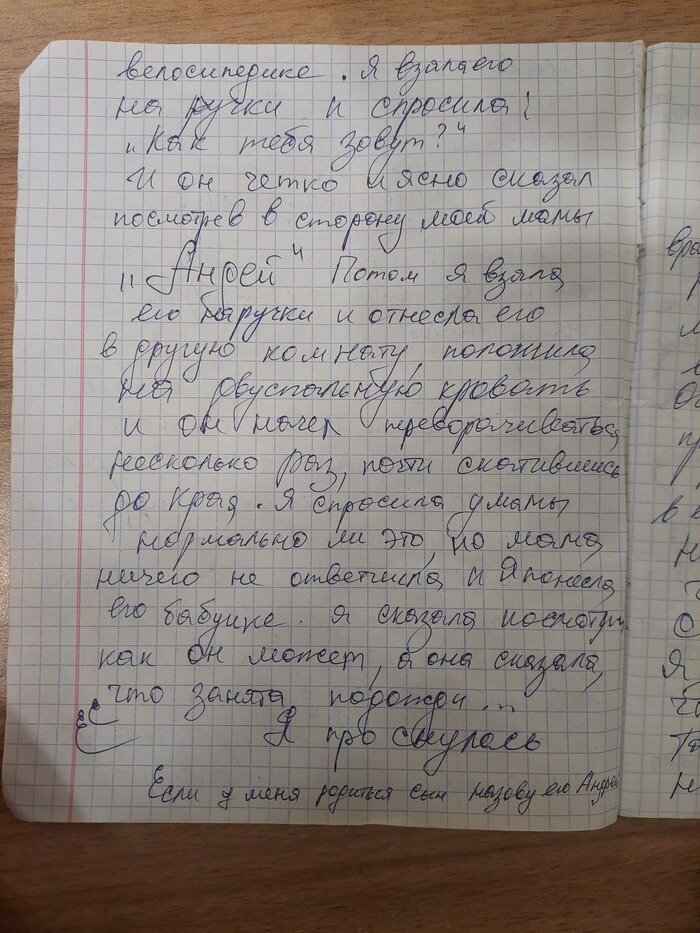 велосипедике. Я взяла его
на ручки и спросила:
„Как тебя зовут?“
И он четко и ясно сказал
посмотрев в сторону моей мамы
„Андрей“ Потом я взяла
его на ручки и отнесла его
в другую комнату, положила
на двуспальную кровать
и он начел переворачиваться
несколько раз, почти скатившись
до края. Я спросила у мамы
нормально ли это, но мама
ничего не ответила и Я понесла
его бабушке. Я сказала посмотри
как он может, а она сказала,
что занята подожди...
Я проснулась
Если у меня родиться сын назову его Андрей
вра
в к
Я